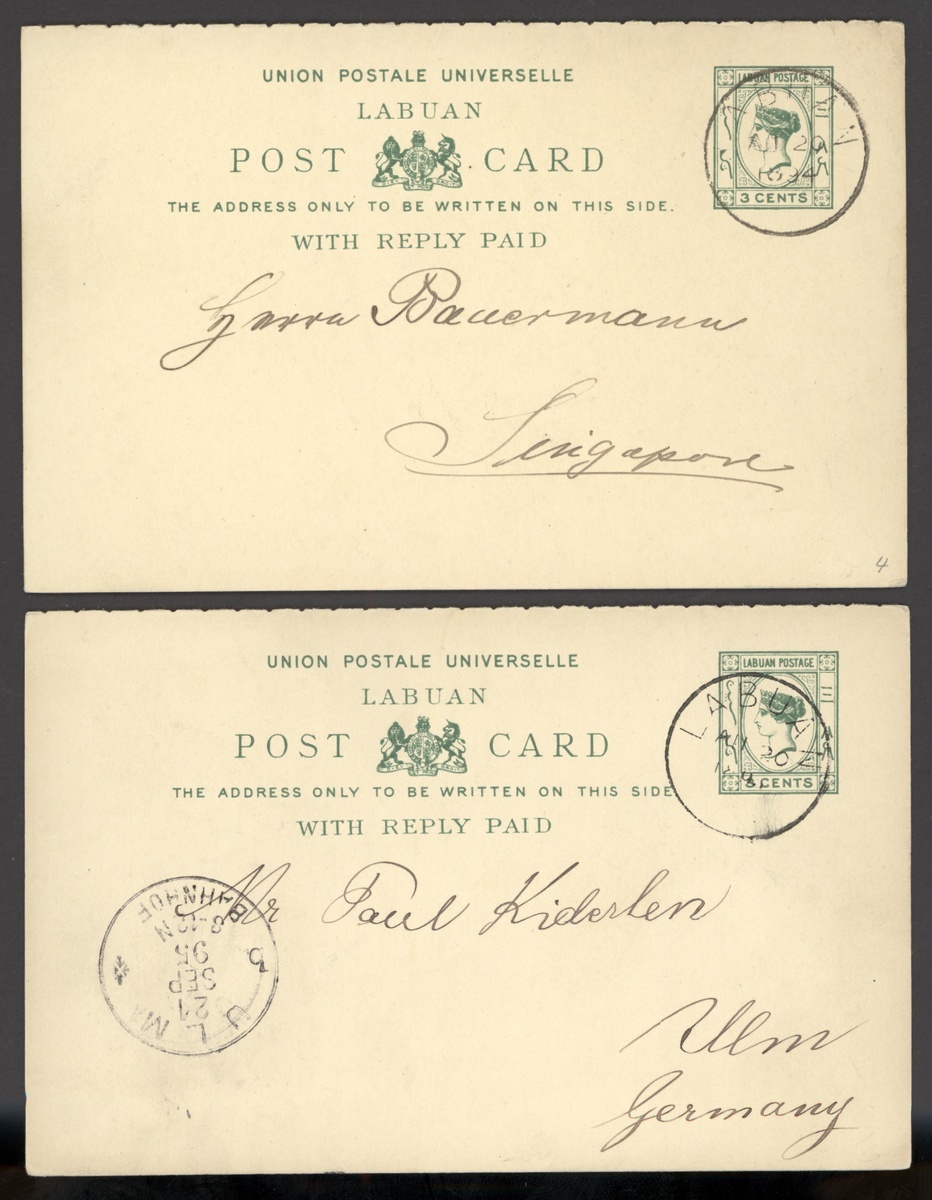 UNION POSTALE UNIVERSELLE
LABUAN
POST CARD
THE ADDRESS ONLY TO BE WRITTEN ON THIS SIDE.
WITH REPLY PAID
LABUAN POSTAGE
3 CENTS
LABUAN
29
1894
Herrn Bauermann
Singapore
4
UNION POSTALE UNIVERSELLE
LABUAN
POST CARD
THE ADDRESS ONLY TO BE WRITTEN ON THIS SIDE
WITH REPLY PAID
LABUAN POSTAGE
3 CENTS
LABUAN
AU 20
Mr Paul Kiderlen
Ulm
Germany
ULM
21
SEP
95
BAHNHOF